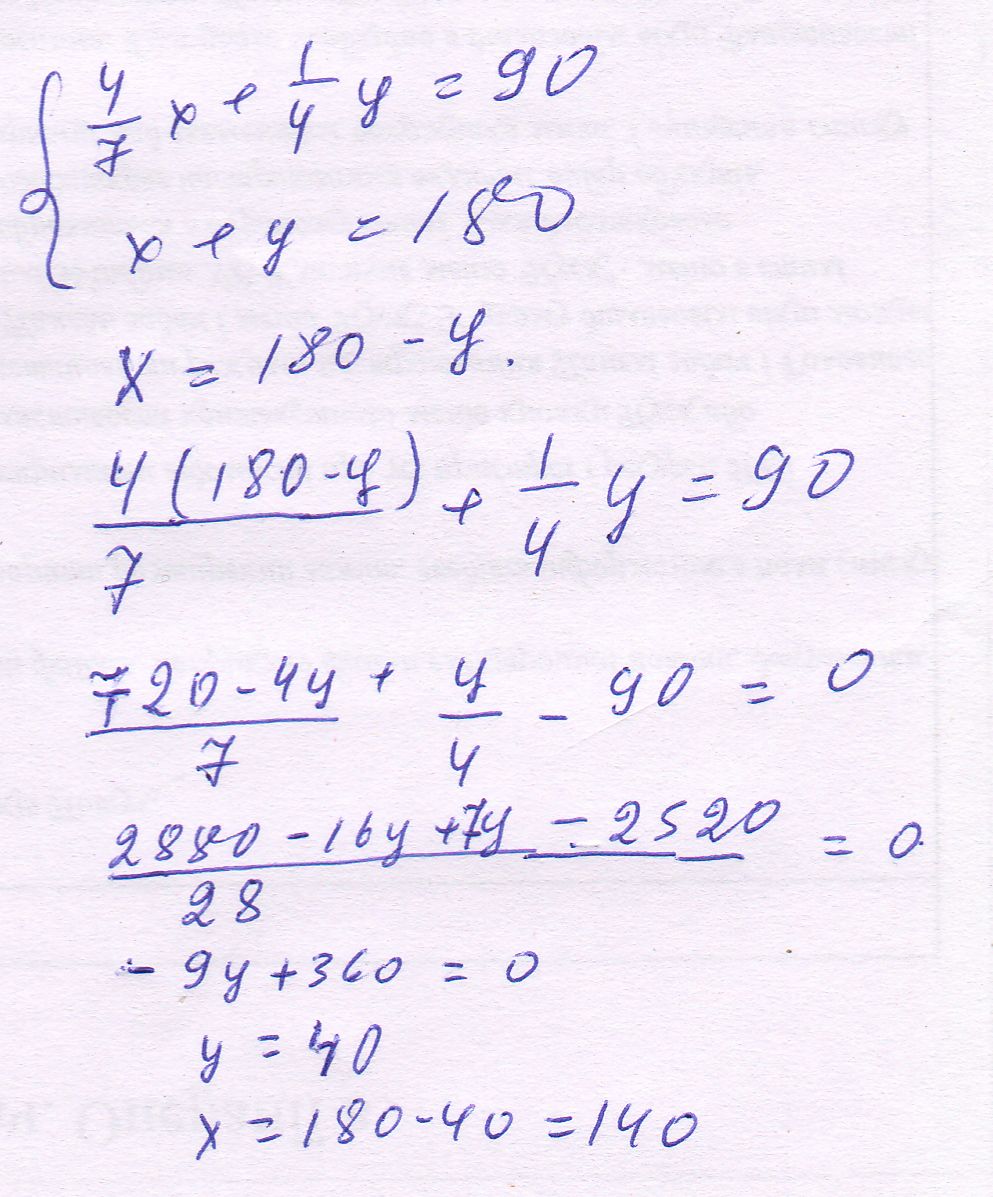 4/7 x + 1/4 y = 90
x + y = 180
x = 180 - y.
4(180-y)/7 + 1/4 y = 90
720-4y/7 + y/4 - 90 = 0
2880 - 16y + 7y - 2520/28 = 0.
- 9y + 360 = 0
y = 40
x = 180 - 40 = 140